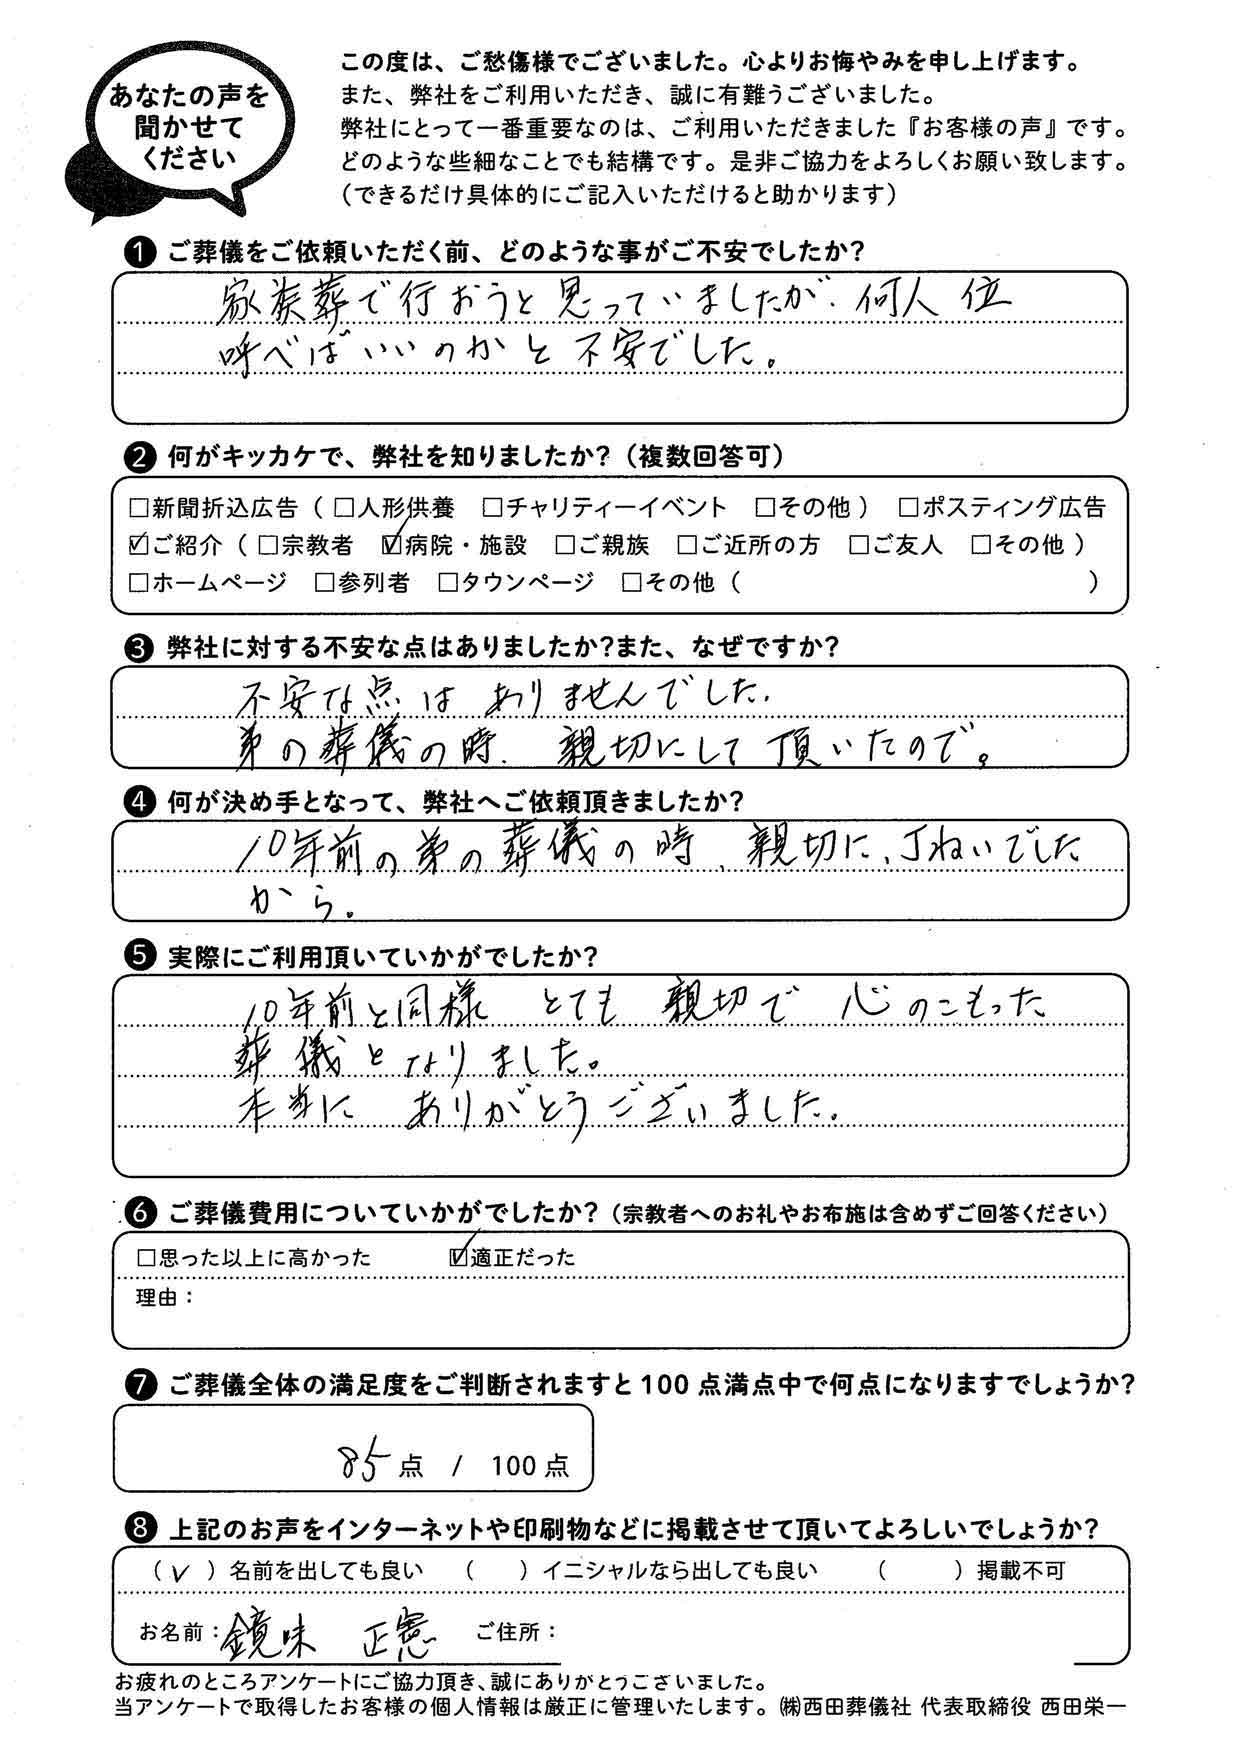 あなたの声を
聞かせて
ください
この度は、ご愁傷様でございました。心よりお悔やみを申し上げます。
また、弊社をご利用いただき、誠に有難うございました。
弊社にとって一番重要なのは、ご利用いただきました『お客様の声』です。
どのような些細なことでも結構です。是非ご協力をよろしくお願い致します。
（できるだけ具体的にご記入いただけると助かります）
❶ ご葬儀をご依頼いただく前、どのような事がご不安でしたか?
家族葬で行おうと思っていましたが、何人位
呼べばいいのかと不安でした。
❷ 何がキッカケで、弊社を知りましたか?（複数回答可）
□新聞折込広告（□人形供養 □チャリティーイベント □その他） □ポスティング広告
☑ご紹介（□宗教者 ☑病院・施設 □ご親族 □ご近所の方 □ご友人 □その他）
□ホームページ □参列者 □タウンページ □その他（ ）
❸ 弊社に対する不安な点はありましたか?また、なぜですか?
不安な点は ありませんでした。
弟の葬儀の時、親切にして頂いたので。
❹ 何が決め手となって、弊社へご依頼頂きましたか?
10年前の弟の葬儀の時、親切に、丁ねいでした
から。
❺ 実際にご利用頂いていかがでしたか?
10年前と同様 とても 親切で 心のこもった
葬儀となりました。
本当に ありがとうございました。
❻ ご葬儀費用についていかがでしたか?（宗教者へのお礼やお布施は含めずご回答ください）
□思った以上に高かった ☑適正だった
理由：
❼ ご葬儀全体の満足度をご判断されますと100点満点中で何点になりますでしょうか?
85点 / 100点
❽ 上記のお声をインターネットや印刷物などに掲載させて頂いてよろしいでしょうか?
（✓）名前を出しても良い （ ）イニシャルなら出しても良い （ ）掲載不可
お名前：鏡味 正憲 ご住所：
お疲れのところアンケートにご協力頂き、誠にありがとうございました。
当アンケートで取得したお客様の個人情報は厳正に管理いたします。㈱西田葬儀社 代表取締役 西田栄一